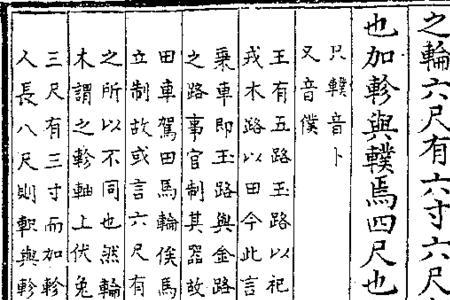 之輪六尺有六寸六尺
也加軫與轐焉四尺也
只轐音卜
又音僕
王有五路玉路以祀
戎木路以田今此言
乗車即玉路與金路
之路事官制其器故
田車駕田馬輪俟馬
立制故或言六尺有
之所以不同也然輪
木謂之軫軸上伏兔
三尺有三寸而加軫
人長八尺則軹與軫